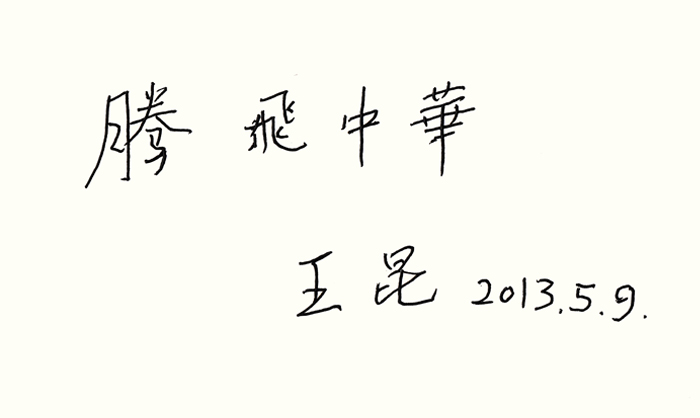 腾飛中華
王昆 2013.5.9.